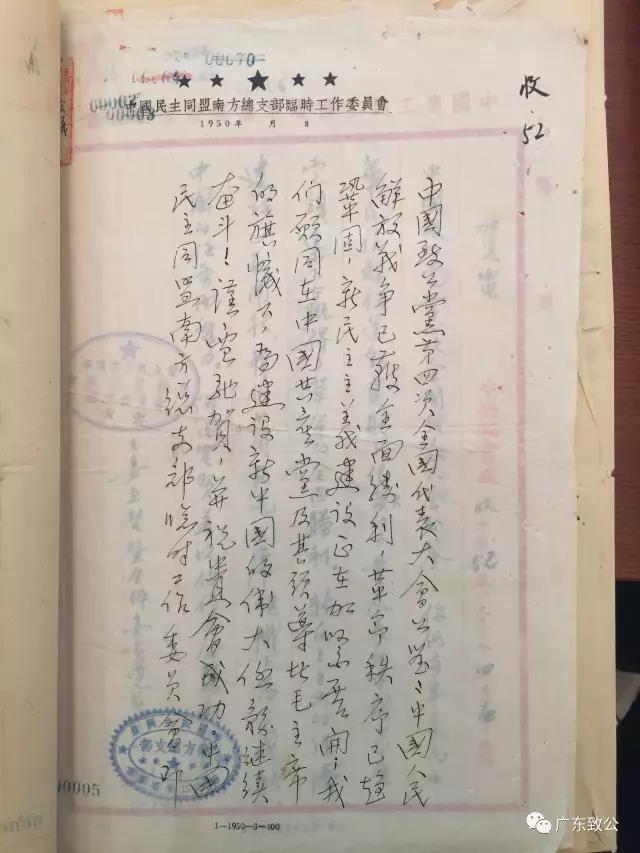 00070
00002
00003
中國民主同盟南方總支部臨時工作委員會
1950年 月 日
收
52
中国致公黨第四次全国代表大會公鉴：中国人民
解放战争已获全面勝利，革命秩序已趋
鞏固，新民主主義建设正在加紧展開，我
们願同在中国共産黨及其领導者毛主席
的旗幟下，為建设新中国的偉大任務继续
奋斗！谨電驰贺，並祝貴會成功。中国
民主同盟南方總支部临时工作委员會 印
賀電
收
52
00005
1—1950—3—100
广东致公